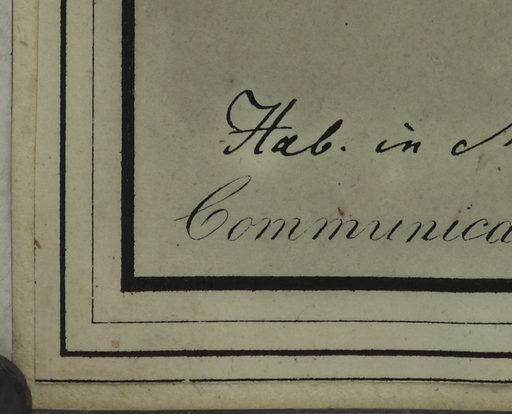 Hab. in
Communica